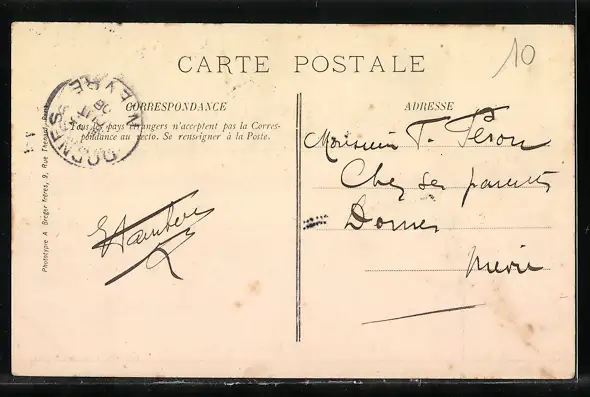 CARTE POSTALE
10
CORRESPONDANCE
Tous les pays étrangers n'acceptent pas la Corres-
pondance au recto. Se renseigner à la Poste.
ADRESSE
Monsieur T. Péron
Chez ses parents
Dornes
Nièvre
DORNES
NIEVRE
Phototypie A. Breger Frères, 9, Rue Thénard, Paris